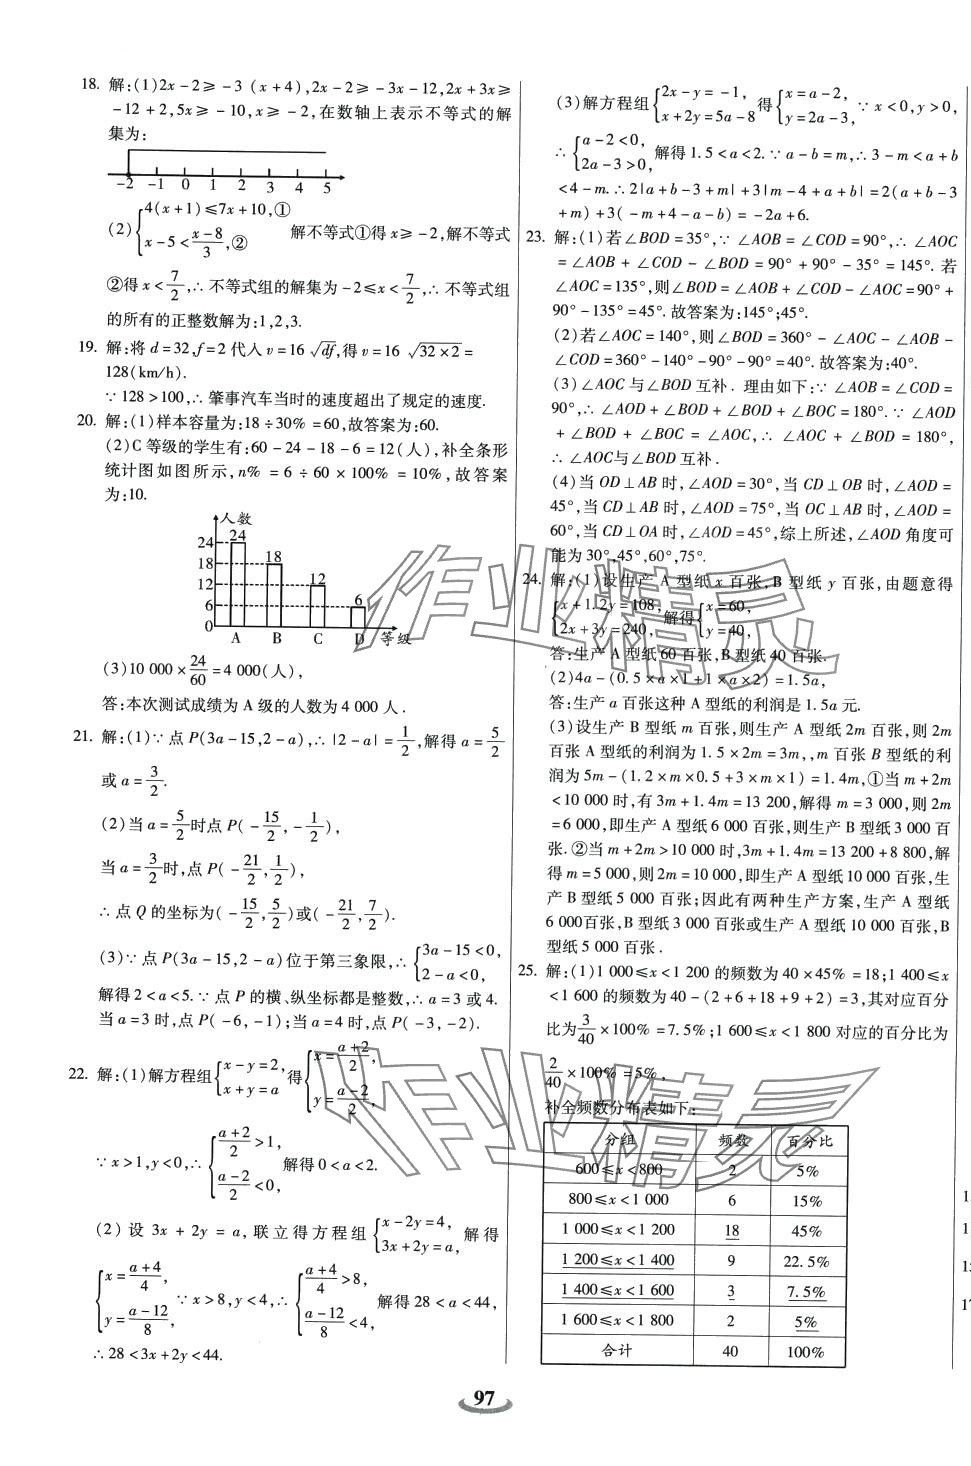 18. 解:(1)2x-2≥-3 (x+4),2x-2≥-3x-12,2x+3x≥
-12+2,5x≥-10,x≥-2,在数轴上表示不等式的解
集为:
-2 -1 0 1 2 3 4 5
(2){4(x+1)≤7x+10,① x-5<(x-8)/3,② 解不等式①得x≥-2,解不等式
②得x<7/2,∴不等式组的解集为-2≤x<7/2,∴不等式组
的所有的正整数解为:1,2,3.
19. 解:将d=32,f=2代入v=16√df,得v=16 √32×2=
128(km/h).
∵128>100,∴肇事汽车当时的速度超出了规定的速度.
20. 解:(1)样本容量为:18÷30%=60,故答案为:60.
(2)C等级的学生有:60-24-18-6=12(人),补全条形
统计图如图所示,n%=6÷60×100%=10%,故答案
为:10.
人数
24 24
18 18
12 12
6 6
0 A B C D 等级
(3)10 000×24/60=4 000(人),
答:本次测试成绩为A级的人数为4 000人.
21. 解:(1)∵点P(3a-15,2-a),∴|2-a|=1/2,解得a=5/2
或a=3/2.
(2)当a=5/2时点P(-15/2,-1/2),
当a=3/2时,点P(-21/2,1/2),
∴点Q的坐标为(-15/2,5/2)或(-21/2,7/2).
(3)∵点P(3a-15,2-a)位于第三象限,∴{3a-15<0, 2-a<0,
解得2<a<5.∵点P的横、纵坐标都是整数,∴a=3或4.
当a=3时,点P(-6,-1);当a=4时,点P(-3,-2).
22. 解:(1)解方程组{x-y=2, x+y=a 得{x=(a+2)/2, y=(a-2)/2,
∵x>1,y<0,∴{(a+2)/2>1, (a-2)/2<0, 解得0<a<2.
(2)设3x+2y=a,联立得方程组{x-2y=4, 3x+2y=a, 解得
{x=(a+4)/4, y=(a-12)/8, ∵x>8,y<4,∴{(a+4)/4>8, (a-12)/8<4, 解得28<a<44,
∴28<3x+2y<44.
(3)解方程组{2x-y=-1, x+2y=5a-8 得{x=a-2, y=2a-3, ∵x<0,y>0,
∴{a-2<0, 2a-3>0, 解得1.5<a<2.∵a-b=m,∴3-m<a+b
<4-m.∴2|a+b-3+m|+3|m-4+a+b|=2(a+b-3
+m)+3(-m+4-a-b)=-2a+6.
23. 解:(1)若∠BOD=35°,∵∠AOB=∠COD=90°,∴∠AOC
=∠AOB+∠COD-∠BOD=90°+90°-35°=145°.若
∠AOC=135°,则∠BOD=∠AOB+∠COD-∠AOC=90°+
90°-135°=45°.故答案为:145°;45°.
(2)若∠AOC=140°,则∠BOD=360°-∠AOC-∠AOB-
∠COD=360°-140°-90°-90°=40°.故答案为:40°.
(3)∠AOC与∠BOD互补.理由如下:∵∠AOB=∠COD=
90°,∴∠AOD+∠BOD+∠BOD+∠BOC=180°.∵∠AOD
+∠BOD+∠BOC=∠AOC,∴∠AOC+∠BOD=180°,
∴∠AOC与∠BOD互补.
(4)当OD⊥AB时,∠AOD=30°,当CD⊥OB时,∠AOD=
45°,当CD⊥AB时,∠AOD=75°,当OC⊥AB时,∠AOD=
60°,当CD⊥OA时,∠AOD=45°,综上所述,∠AOD角度可
能为30°,45°,60°,75°.
24. 解:(1)设生产A型纸x百张,B型纸y百张,由题意得
{x+1.2y=108, 2x+3y=240, 解得{x=60, y=40,
答:生产A型纸60百张,B型纸40百张.
(2)4a-(0.5×a×1+1×a×2)=1.5a,
答:生产a百张这种A型纸的利润是1.5a元.
(3)设生产B型纸m百张,则生产A型纸2m百张,则2m
百张A型纸的利润为1.5×2m=3m,,m百张B型纸的利
润为5m-(1.2×m×0.5+3×m×1)=1.4m,①当m+2m
<10 000时,有3m+1.4m=13 200,解得m=3 000,则2m
=6 000,即生产A型纸6 000百张,则生产B型纸3 000百
张.②当m+2m>10 000时,3m+1.4m=13 200+8 800,解
得m=5 000,则2m=10 000,即生产A型纸10 000百张,生
产B型纸5 000百张;因此有两种生产方案,生产A型纸
6 000百张,B型纸3 000百张或生产A型纸10 000百张,B
型纸5 000百张.
25. 解:(1)1 000≤x<1 200的频数为40×45%=18;1 400≤x
<1 600的频数为40-(2+6+18+9+2)=3,其对应百分
比为3/40×100%=7.5%;1 600≤x<1 800对应的百分比为
2/40×100%=5%,
补全频数分布表如下:
分组 频数 百分比
600≤x<800 2 5%
800≤x<1 000 6 15%
1 000≤x<1 200 18 45%
1 200≤x<1 400 9 22.5%
1 400≤x<1 600 3 7.5%
1 600≤x<1 800 2 5%
合计 40 100%
97
作业精灵
作业精灵